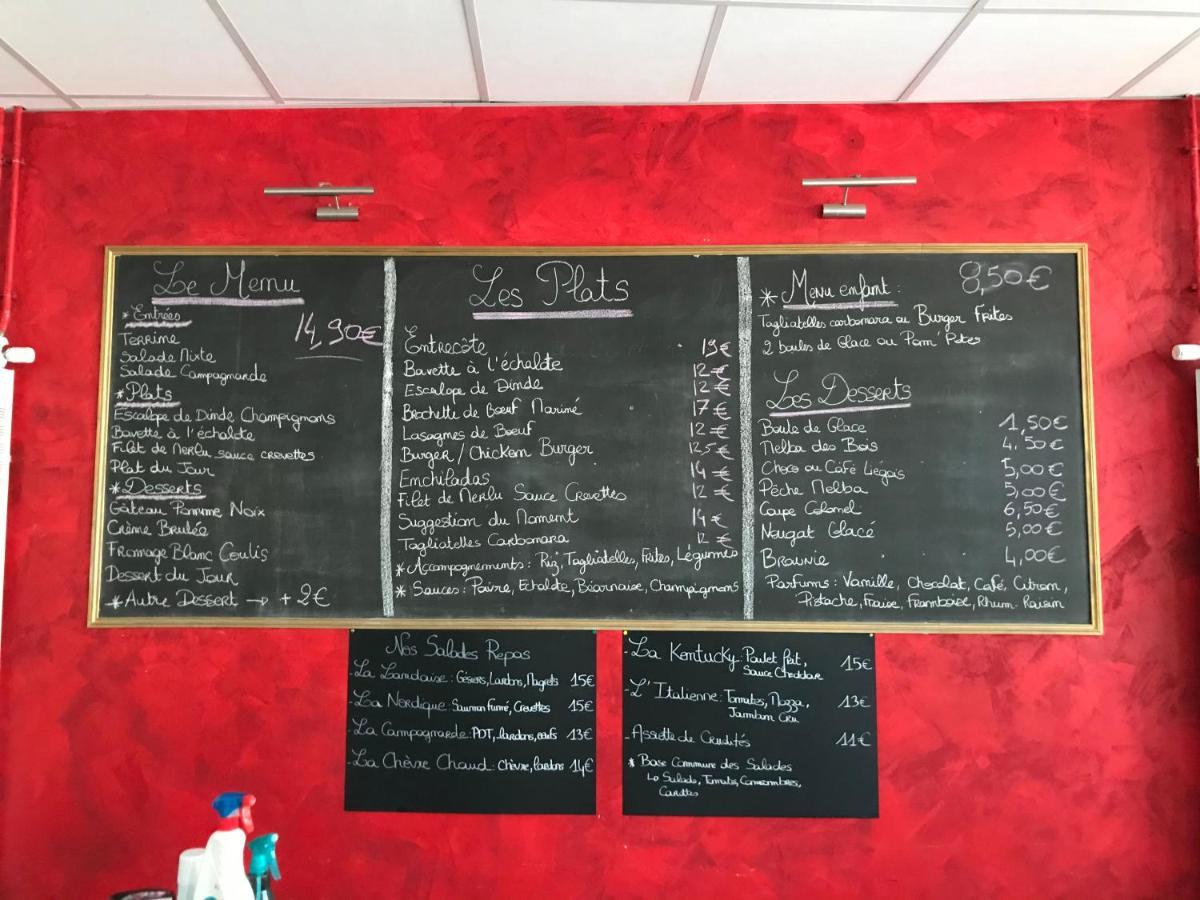 Le Menu
14,90€
* Entrées
Terrine
Salade Mixte
Salade Campagnarde
* Plats
Escalope de Dinde Champignons
Bavette à l'échalote
Filet de Merlu sauce crevettes
Plat du Jour
* Desserts
Gâteau Pomme Noix
Crème Brulée
Fromage Blanc Coulis
Dessert du Jour
* Autre Dessert → + 2€
Les Plats
Entrecôte 19€
Bavette à l'échalote 12€
Escalope de Dinde 12€
Brochette de Bœuf Mariné 17€
Lasagnes de Bœuf 12€
Burger / Chicken Burger 12,5€
Enchiladas 14€
Filet de Merlu Sauce Crevettes 12€
Suggestion du Moment 14€
Tagliatelles Carbonara 12€
* Accompagnements : Riz, Tagliatelles, Frites, Légumes
* Sauces : Poivre, Echalote, Béarnaise, Champignons
* Menu enfant : 8,50€
Tagliatelles carbonara ou Burger Frites
2 boules de Glace ou Pom' Potes
Les Desserts
Boule de Glace 1,50€
Melba des Bois 4.50€
Choco ou Café Liégois 5,00€
Pêche Melba 5,00€
Coupe Colonel 6,50€
Nougat Glacé 5,00€
Brownie 4,00€
Parfums : Vanille, Chocolat, Café, Citron,
Pistache, Fraise, Framboise, Rhum-Raisin
Nos Salades Repas
- La Landaise : Gésiers, Lardons, Magrets 15€
- La Nordique : Saumon Fumé, Crevettes 15€
- La Campagnarde : PDT, lardons, œufs 13€
- La Chèvre Chaud : Chèvre, lardons 14€
- La Kentucky : Poulet Frit, 15€
Sauce Cheddar
- L'Italienne : Tomates, Mozza, 13€
Jambon Cru
- Assiette de Crudités 11€
* Base Commune des Salades
↳ Salade, Tomates, Concombres,
Carottes